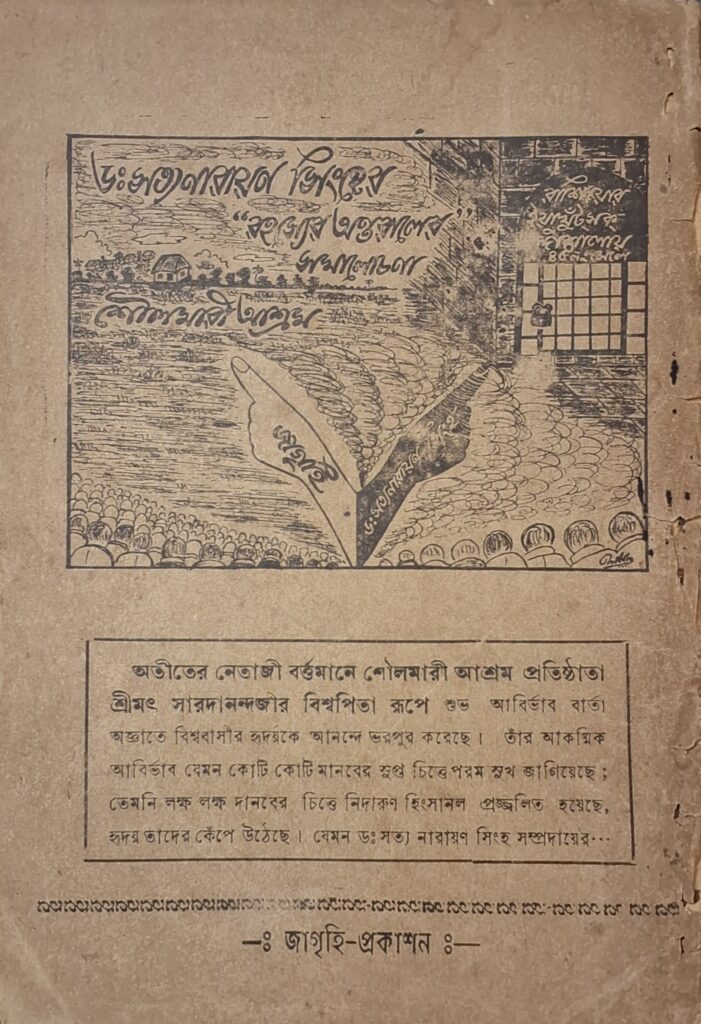 ডঃ সত্যনারায়ণ সিংহের
“রহস্যের অন্তরালের”
সমালোচনা
শৌলমারী আশ্রম
রাশিয়ার
জাগৃহি
ডঃ সত্যনারায়ণ সিংহ
অতীতের নেতাজী বর্ত্তমানে শৌলমারী আশ্রম প্রতিষ্ঠাতা
শ্রীমৎ সারদানন্দজীর বিশ্বপিতা রূপে শুভ আবির্ভাব বার্তা
অজ্ঞাতে বিশ্ববাসীর হৃদয়কে আনন্দে ভরপুর করেছে। তাঁর আকস্মিক
আবির্ভাব যেমন কোটি কোটি মানবের সুপ্ত চিত্তে পরম সুখ জাগিয়েছে ;
তেমনি লক্ষ লক্ষ দানবের চিত্তে নিদারুণ হিংসানল প্রজ্জ্বলিত হয়েছে,
হৃদয় তাদের কেঁপে উঠেছে। যেমন ডঃ সত্য নারায়ণ সিংহ সম্প্রদায়ের···
—ঃ জাগৃহি-প্রকাশন ঃ—